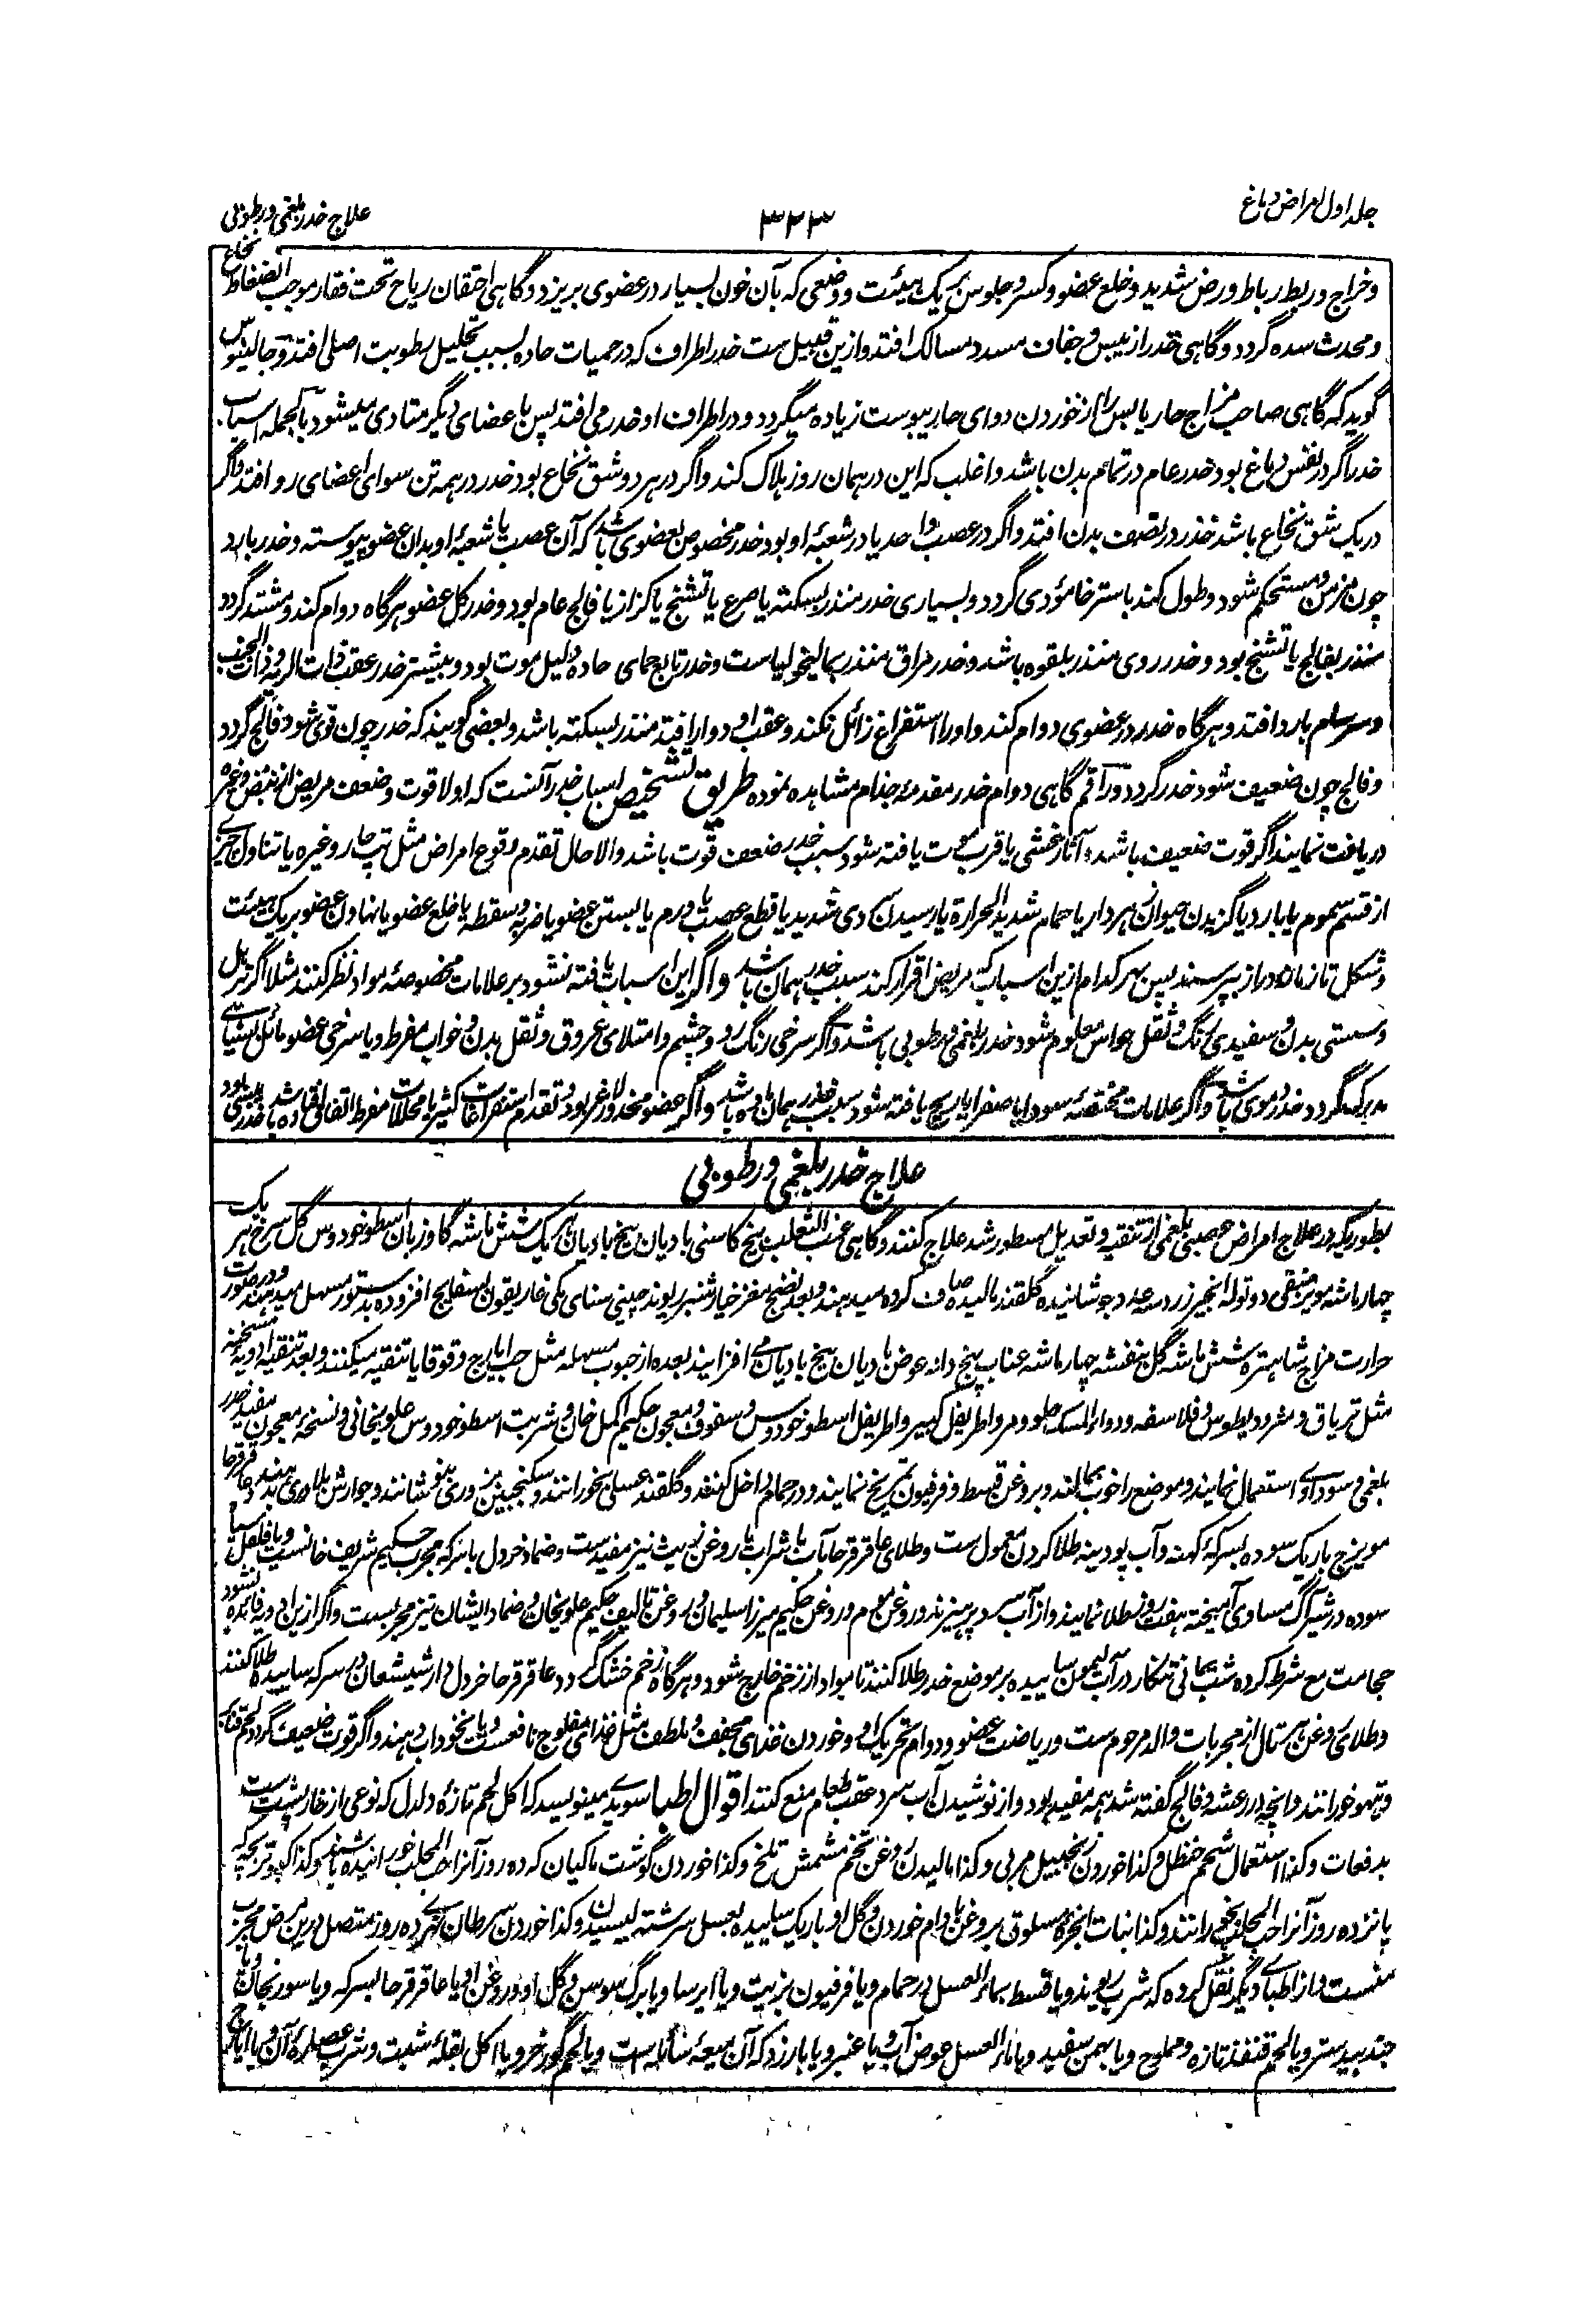 جلد اول امراض دماغ
۳۲۳
علاج خدر بلغمی و رطوبی
و خراج و ربط رباط و رض شدید و خلع عضو و کسر و جلوس بر یک هیئت و وضعی که بآن خون بسیار در عضوی بریزد و گاهی احتقان ریاح تحت فقار موجب انضغاط نخاع
و محدث سده گردد و گاهی خدر از یبس و جفاف مسدد مسالک افتد و ازین قبیل ست خدر اطراف که در حمیات حاده بسبب تحلیل رطوبت اصلی افتد و جالینوس
گوید که گاهی صاحب مزاج حار یابس را از خوردن دوای حار یبوست زیاده میگردد و در اطراف او خدر می افتد پس با عضای دیگر متادی میشود بالجمله اسباب
خدر اگر در نفس دماغ بود خدر عام در تمام بدن باشد و اغلب که این در همان روز هلاک کند و اگر در هر دو شق نخاع بود خدر در همه تن سوای اعضای رو افتد و اگر
در یک شق نخاع باشد خدر در نصف بدن افتد و اگر در عصب واحد یا در شعبهٔ او بود خدر مخصوص بعضوی باشد که آن عصب یا شعبهٔ او بدان عضو پیوسته و خدر بارد
چون مزمن و مستحکم شود و طول کند باسترخا مؤدی گردد و بسیاری خدر منذر بسکته یا صرع یا تشنج یا کزاز یا فالج عام بود و خدر کل عضو هرگاه دوام کند و مشتد گردد
منذر بفالج یا تشنج بود و خدر روی منذر بلقوه باشد و خدر مراق منذر بمالیخولیاست و خدر تابع حمای حاده دلیل موت بود و بیشتر خدر عقب ذات الریه و ذات الجنب
و سرسام بارد افتد و هرگاه خدر در عضوی دوام کند و او را استفراغ زائل نکند و عقب او دوار افتد منذر بسکته باشد و بعضی گویند که خدر چون قوی شود فالج گردد
و فالج چون ضعیف شود خدر گردد و راقم گاهی دوام خدر مقدمهٔ جذام مشاهده نموده طریق تشخیص اسباب خدر آنست که اولا قوت و ضعف مریض از نبض و غیره
دریافت نمایند اگر قوت ضعیف باشد و آثار غشی یا قرب موت یافته شود سبب خدر ضعف قوت باشد والا حال تقدم وقوع امراض مثل تپ حار و غیره یا تناول چیزی
از قسم سموم یا بارد یا گزیدن حیوان زهردار یا حمام شدید الحرارة یا رسیدن سردی شدید یا قطع عصب یا ورم یا بستن عضو یا ضربه و سقطه یا خلع عضو یا نهادن عضو بر یک هیئت
و شکل تا زمانه دراز بپرسند پس بهر کدام ازین اسباب که مریض اقرار کند سبب خدر همان باشد و اگر این اسباب یافته نشود بر علامات مخصوصهٔ مواد نظر کنند مثلا اگر ترهل
و سستی بدن و سفیدی رنگ و ثقل حواس معلوم شود خدر بلغمی و رطوبی باشد و اگر سرخی رنگ رو و چشم و امتلای عروق و ثقل بدن و خواب مفرط و یا سرخی عضو مائل بسیاهی
مدرک گردد خدر دموی باشد و اگر علامات مختصهٔ سودا یا صفرا یا ریح یافته شود سبب خدر همان ماده باشد و اگر عضو مخدور لاغر بود و تقدم استفراغات کثیر یا محللات مفرط اتفاق افتاده باشد خدر یبسی بود
علاج خدر بلغمی و رطوبی
بطوریکه در علاج امراض عصبی بلغمی از تنقیه و تعدیل مسطور شد علاج کنند و گاهی عنب الثعلب بیخ کاسنی بادیان بیخ بادیان هر یک شش ماشه گاوزبان اسطوخودوس گل سرخ هر یک
چهار ماشه مویز منقی دو توله انجیر زرد سه عدد جوشانیده گلقند مالیده صاف کرده میدهند و بعد نضج مغز خیارشنبر ریوند چینی سنای مکی غاریقون بسفایج افزوده بدستور مسهل میدهند و در صورت
حرارت مزاج شاهتره شش ماشه گل بنفشه چهار ماشه عناب پنج دانه عوض بادیان بیخ بادیان می افزایند بعده از حبوب مسهله مثل حب ایارج و قوقایا تنقیه میکنند و بعد تنقیه ادویه مسخنه
مثل تریاق و مثرودیطوس و فلاسفه و دواء المسک حلو و مر و اطریفل کبیر و اطریفل اسطوخودوس و سفوف و معجون حکیم اکمل خان و شربت اسطوخودوس علویخانی و نسخهٔ معجون مفید خدر
بلغمی و سوداوی استعمال نمایند و موضع را خوب بمالند و بروغن قسط و فرفیون تمریخ نمایند و در حمام داخل کنند و گلقند عسلی بخورانند و سکنجبین بزوری بنوشانند و جوارش بلادری بدهند و عاقرقرحا
مویزج باریک سوده بسرکهٔ کهنه و آب پودینه طلا کردن معمول ست و طلای عاقرقرحا بآب یا شراب یا روغن زیت نیز مفیدست و ضماد خردل با سرکه مجرب حکیم شریف خانست و یا فلفل سیاه
سوده در شیر گرگ مساوی آمیخته هفت روز طلا نمایند و از آب سرد پرهیزند و روغن موم و روغن حکیم میرزا سلیمان و روغن تالیف حکیم علویخان و ضماد ایشان نیز مجربست و اگر ازین ادویه فائده نشود
حجامت مع شرط کرده شب یمانی تنکار در آب لیمون ساییده بر موضع خدر طلا کنند تا مواد از زخم خارج شود و هرگاه زخم خشک گردد عاقرقرحا خردل دارشیشعان در سرکه ساییده طلا کنند
و طلای روغن از مجربات والد مرحوم ست و ریاضت عضو و دوام تحریک او و خوردن غذای مجفف و ملطف مثل غذای مفلوج نافعست و یا نخوداب دهند و اگر قوت ضعیف گردد لحم
و تیهو خورانند و انچه در رعشه و فالج گفته شد همه مفید بود و از نوشیدن آب سرد عقب طعام منع کنند اقوال اطبا سویدی مینویسد که اکل لحم تازهٔ دلدل که نوعی از خارپشت ست
بدفعات و کذا استعمال شحم حنظل و کذا خوردن زنجبیل مربی و کذا مالیدن روغن تخم مشمش تلخ و کذا خوردن گوشت ماکیان که ده روز آنرا حب المحلب خورانیده باشند و کذا کبوتر بچه که
پانزده روز آنرا حب المحلب بخورانند و کذا نبات انجره مسلوق بروغن بادام خوردن و گل او باریک ساییده بعسل سرشته لیسیدن و کذا خوردن سرطان نهری ده روز متصل درین مرض مجرب
منست و از اطبای دیگر نقل کرده که شرب ریوند و یا قسط بماء العسل در حمام و یا فرفیون بزیت و یا ایرسا و یا برگ سوسن و گل او و روغن او و یا عاقرقرحا بسرکه و یا سورنجان و یا
جندبیدستر و یا لحم قنفذ تازه و مملوح و یا بهمن سفید و یا ماء العسل عوض آب و یا عنبر و یا بارزد که آن میعهٔ سائله است و یا لحم گورخر و یا اکل بقلهٔ شبت و شرب عصارهٔ آن و یا ایارج